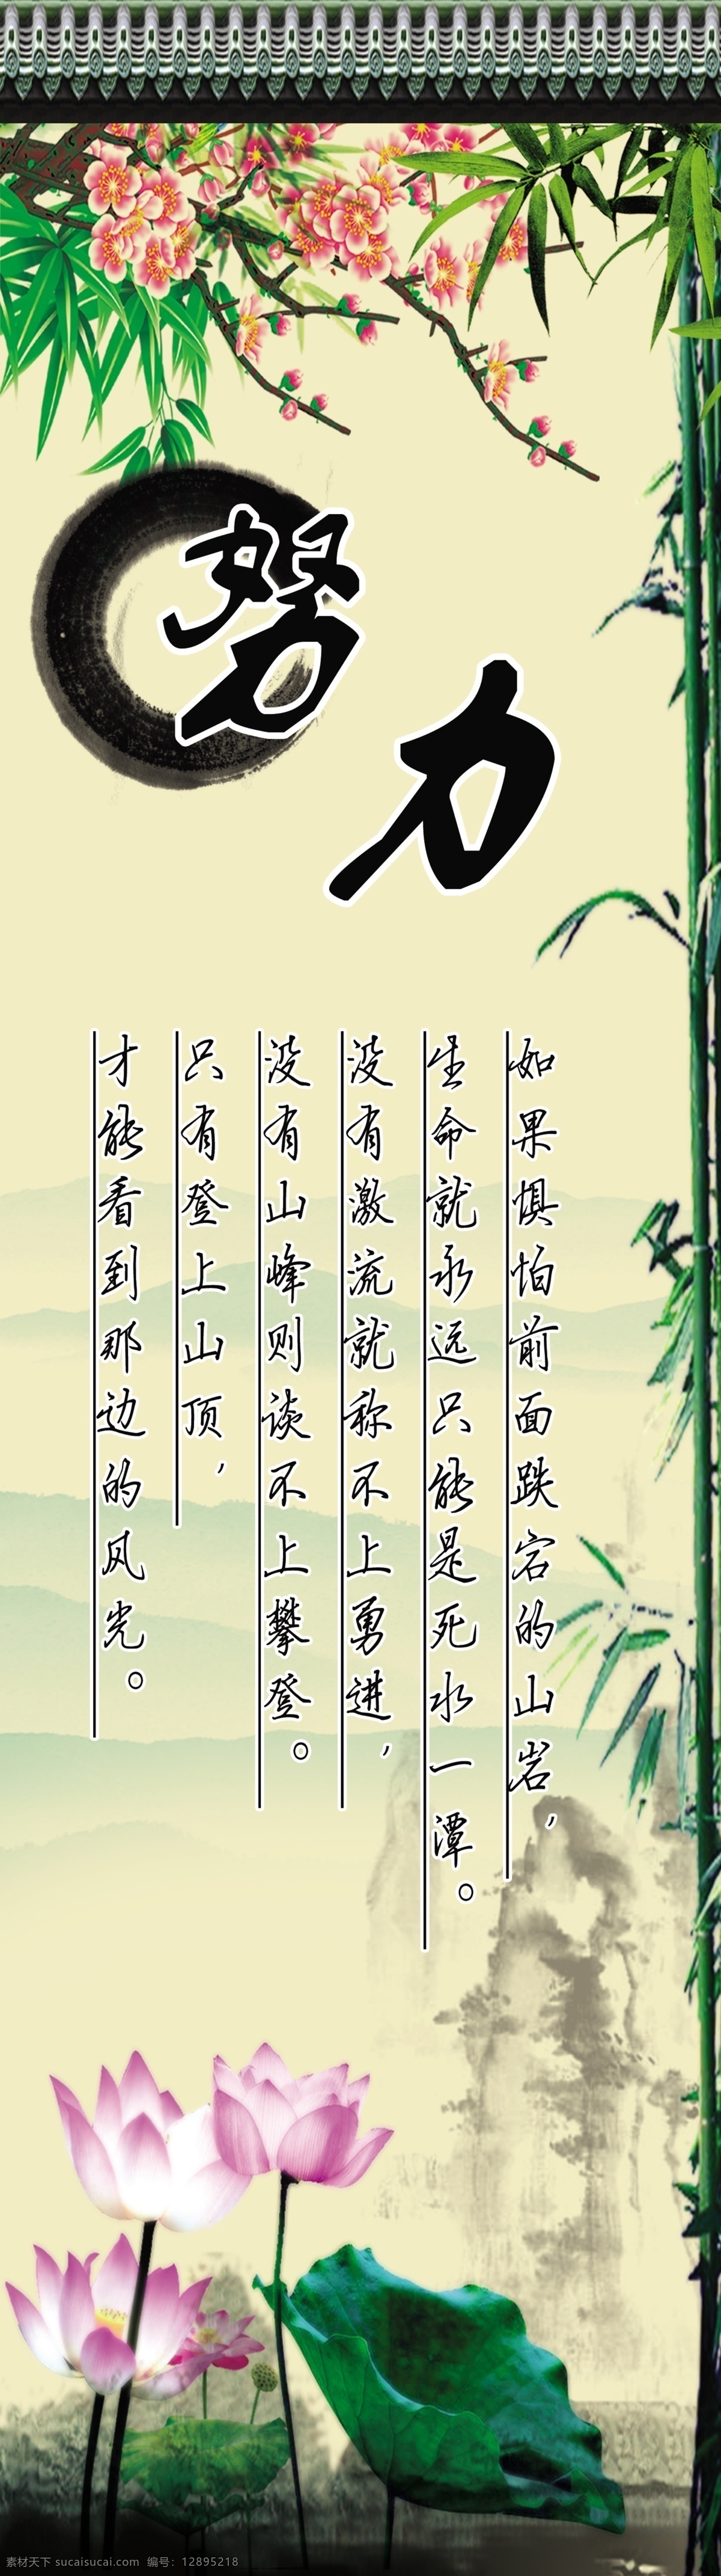 努力
如果惧怕前面跌宕的山岩，
生命就永远只能是死水一潭。
没有激流就称不上勇进，
没有山峰则谈不上攀登。
只有登上山顶，
才能看到那边的风光。
素材天下 sucaisucai.com 编号：12895218